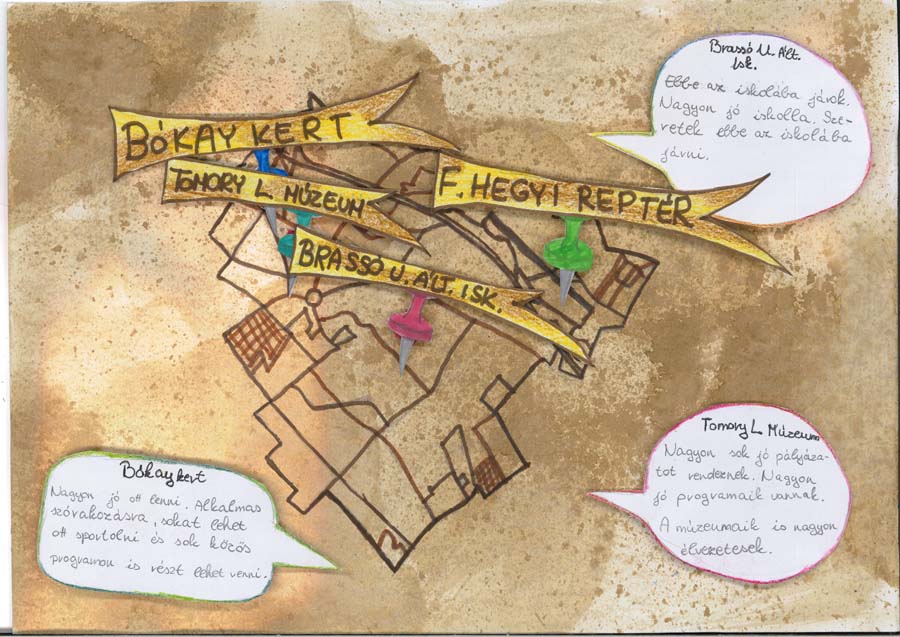 BÓKAY KERT
TOMORY L. MÚZEUM
F. HEGYI REPTÉR
BRASSÓ U. ÁLT. ISK.
Brassó U. Ált.
Isk.
Ebbe az iskolába járok.
Nagyon jó iskolla. Sze-
retek ebbe az iskolába
járni.
Bókay kert
Nagyon jó ott lenni. Alkalmas
szóvakozásra, sokat lehet
ott sportolni és sok közös
programon is részt lehet venni.
Tomory L Múzeum
Nagyon sok jó pályáza-
tot rendeznek. Nagyon
jó programaik vannak.
A múzeumaik is nagyon
élvezetesek.